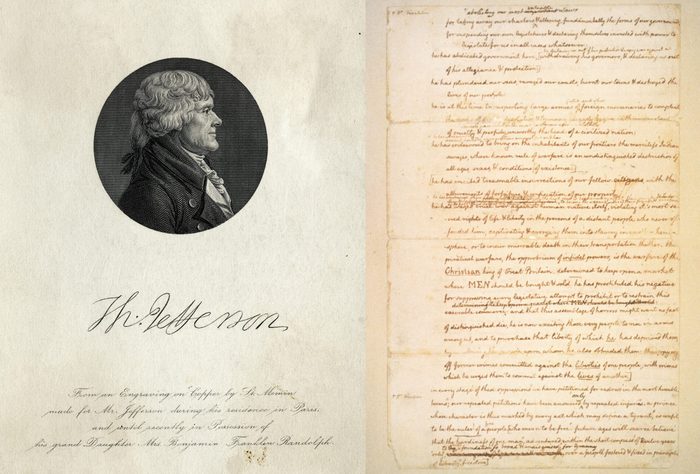 Th. Jefferson
From an Engraving on Copper by St. Memin,
made for Mr. Jefferson during his residence in Paris.
and until recently in Possession of
his grand Daughter Mrs. Benjamin Franklin Randolph.
for taking away our charters & altering fundamentally the forms of our governments
for suspending our own legislatures & declaring themselves invested with power to
legislate for us in all cases whatsoever
he has abdicated government here, [withdrawing his governors, & declaring us out
of his allegiance & protection]
he has plundered our seas, ravaged our coasts, burnt our towns & destroyed the
lives of our people
he is at this time transporting large armies of foreign mercenaries to compleat
of cruelty & perfidy unworthy the head of a civilized nation
he has endeavored to bring on the inhabitants of our frontiers the merciless Indian
savages, whose known rule of warfare is an undistinguished destruction of
all ages, sexes, & conditions [of existence]
[he has incited treasonable insurrections of our fellow citizens with the
allurements of forfeiture & confiscation of our property
he has waged cruel war against human nature itself, violating it's most sa-
cred rights of life & liberty in the persons of a distant people who never of-
fended him, captivating & carrying them into slavery in another hemi-
sphere, or to incur miserable death in their transportation thither. this
piratical warfare, the opprobrium of infidel powers, is the warfare of the
Christian king of Great Britain. determined to keep open a market
where MEN should be bought & sold he has prostituted his negative
for suppressing every legislative attempt to prohibit or to restrain this
determining to keep open a market where MEN should be bought & sold
execrable commerce: and that this assemblage of horrors might want no fact
of distinguished die, he is now exciting those very people to rise in arms
among us, and to purchase that liberty of which he has deprived them,
by murdering the people upon whom he also obtruded them: thus paying
off former crimes committed against the liberties of one people, with crimes
which he urges them to commit against the lives of another.]
in every stage of these oppressions we have petitioned for redress in the most humble
terms; our repeated petitions have been answered only by repeated injuries. a prince
whose character is thus marked by every act which may define a tyrant, is unfit
to be the ruler of a people [who mean to be free. future ages will scarce believe
that the hardiness of one man, adventured within the short compass of twelve years
over a people fostered & fixed in principles
of liberty freedom]